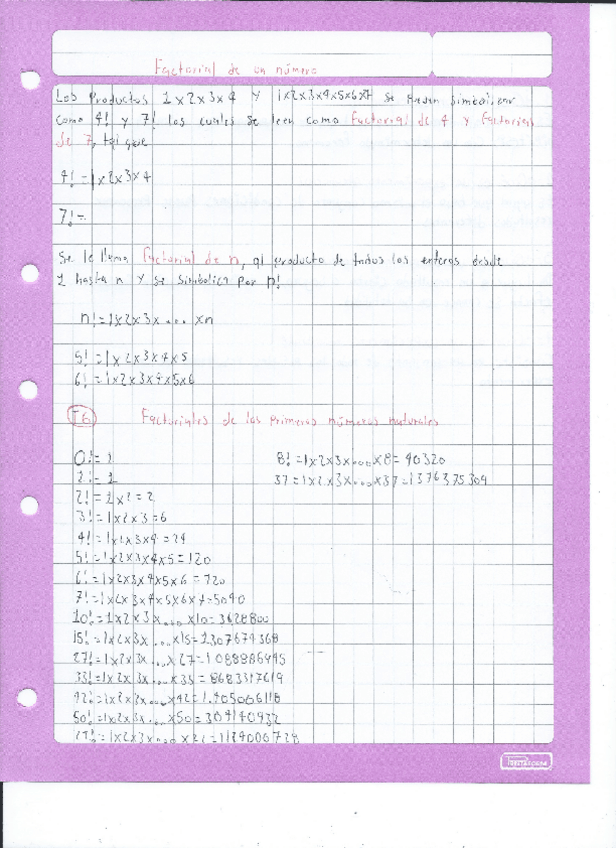 Factorial de un número
Los Productos 1x2x3x4 y 1x2x3x4x5x6x7 se pueden simbolizar
como 4! y 7! los cuales se leen como factorial de 4 y factorial
de 7, tal que
4! = 1x2x3x4
7! =
Se le llama factorial de n, al producto de todos los enteros desde
1 hasta n y se simboliza por n!
n! = 1x2x3x... xn
5! = 1x2x3x4x5
6! = 1x2x3x4x5x6
T6 Factoriales de los primeros números naturales
0! = 1
1! = 1
2! = 1x2 = 2
3! = 1x2x3 = 6
4! = 1x2x3x4 = 24
5! = 1x2x3x4x5 = 120
6! = 1x2x3x4x5x6 = 720
7! = 1x2x3x4x5x6x7=5040
10! = 1x2x3x...x10= 3628800
15! = 1x2x3x...x15=1307674368
27! = 1x2x3x...x27=1088886945
33! = 1x2x3x...x33 = 8683317619
42! = 1x2x3x...x42=1.405006118
50! = 1x2x3x...x50= 304140932
= 1x2x3x...
8! = 1x2x3x...x8= 40320
37 = 1x2x3x...x37=1376375304